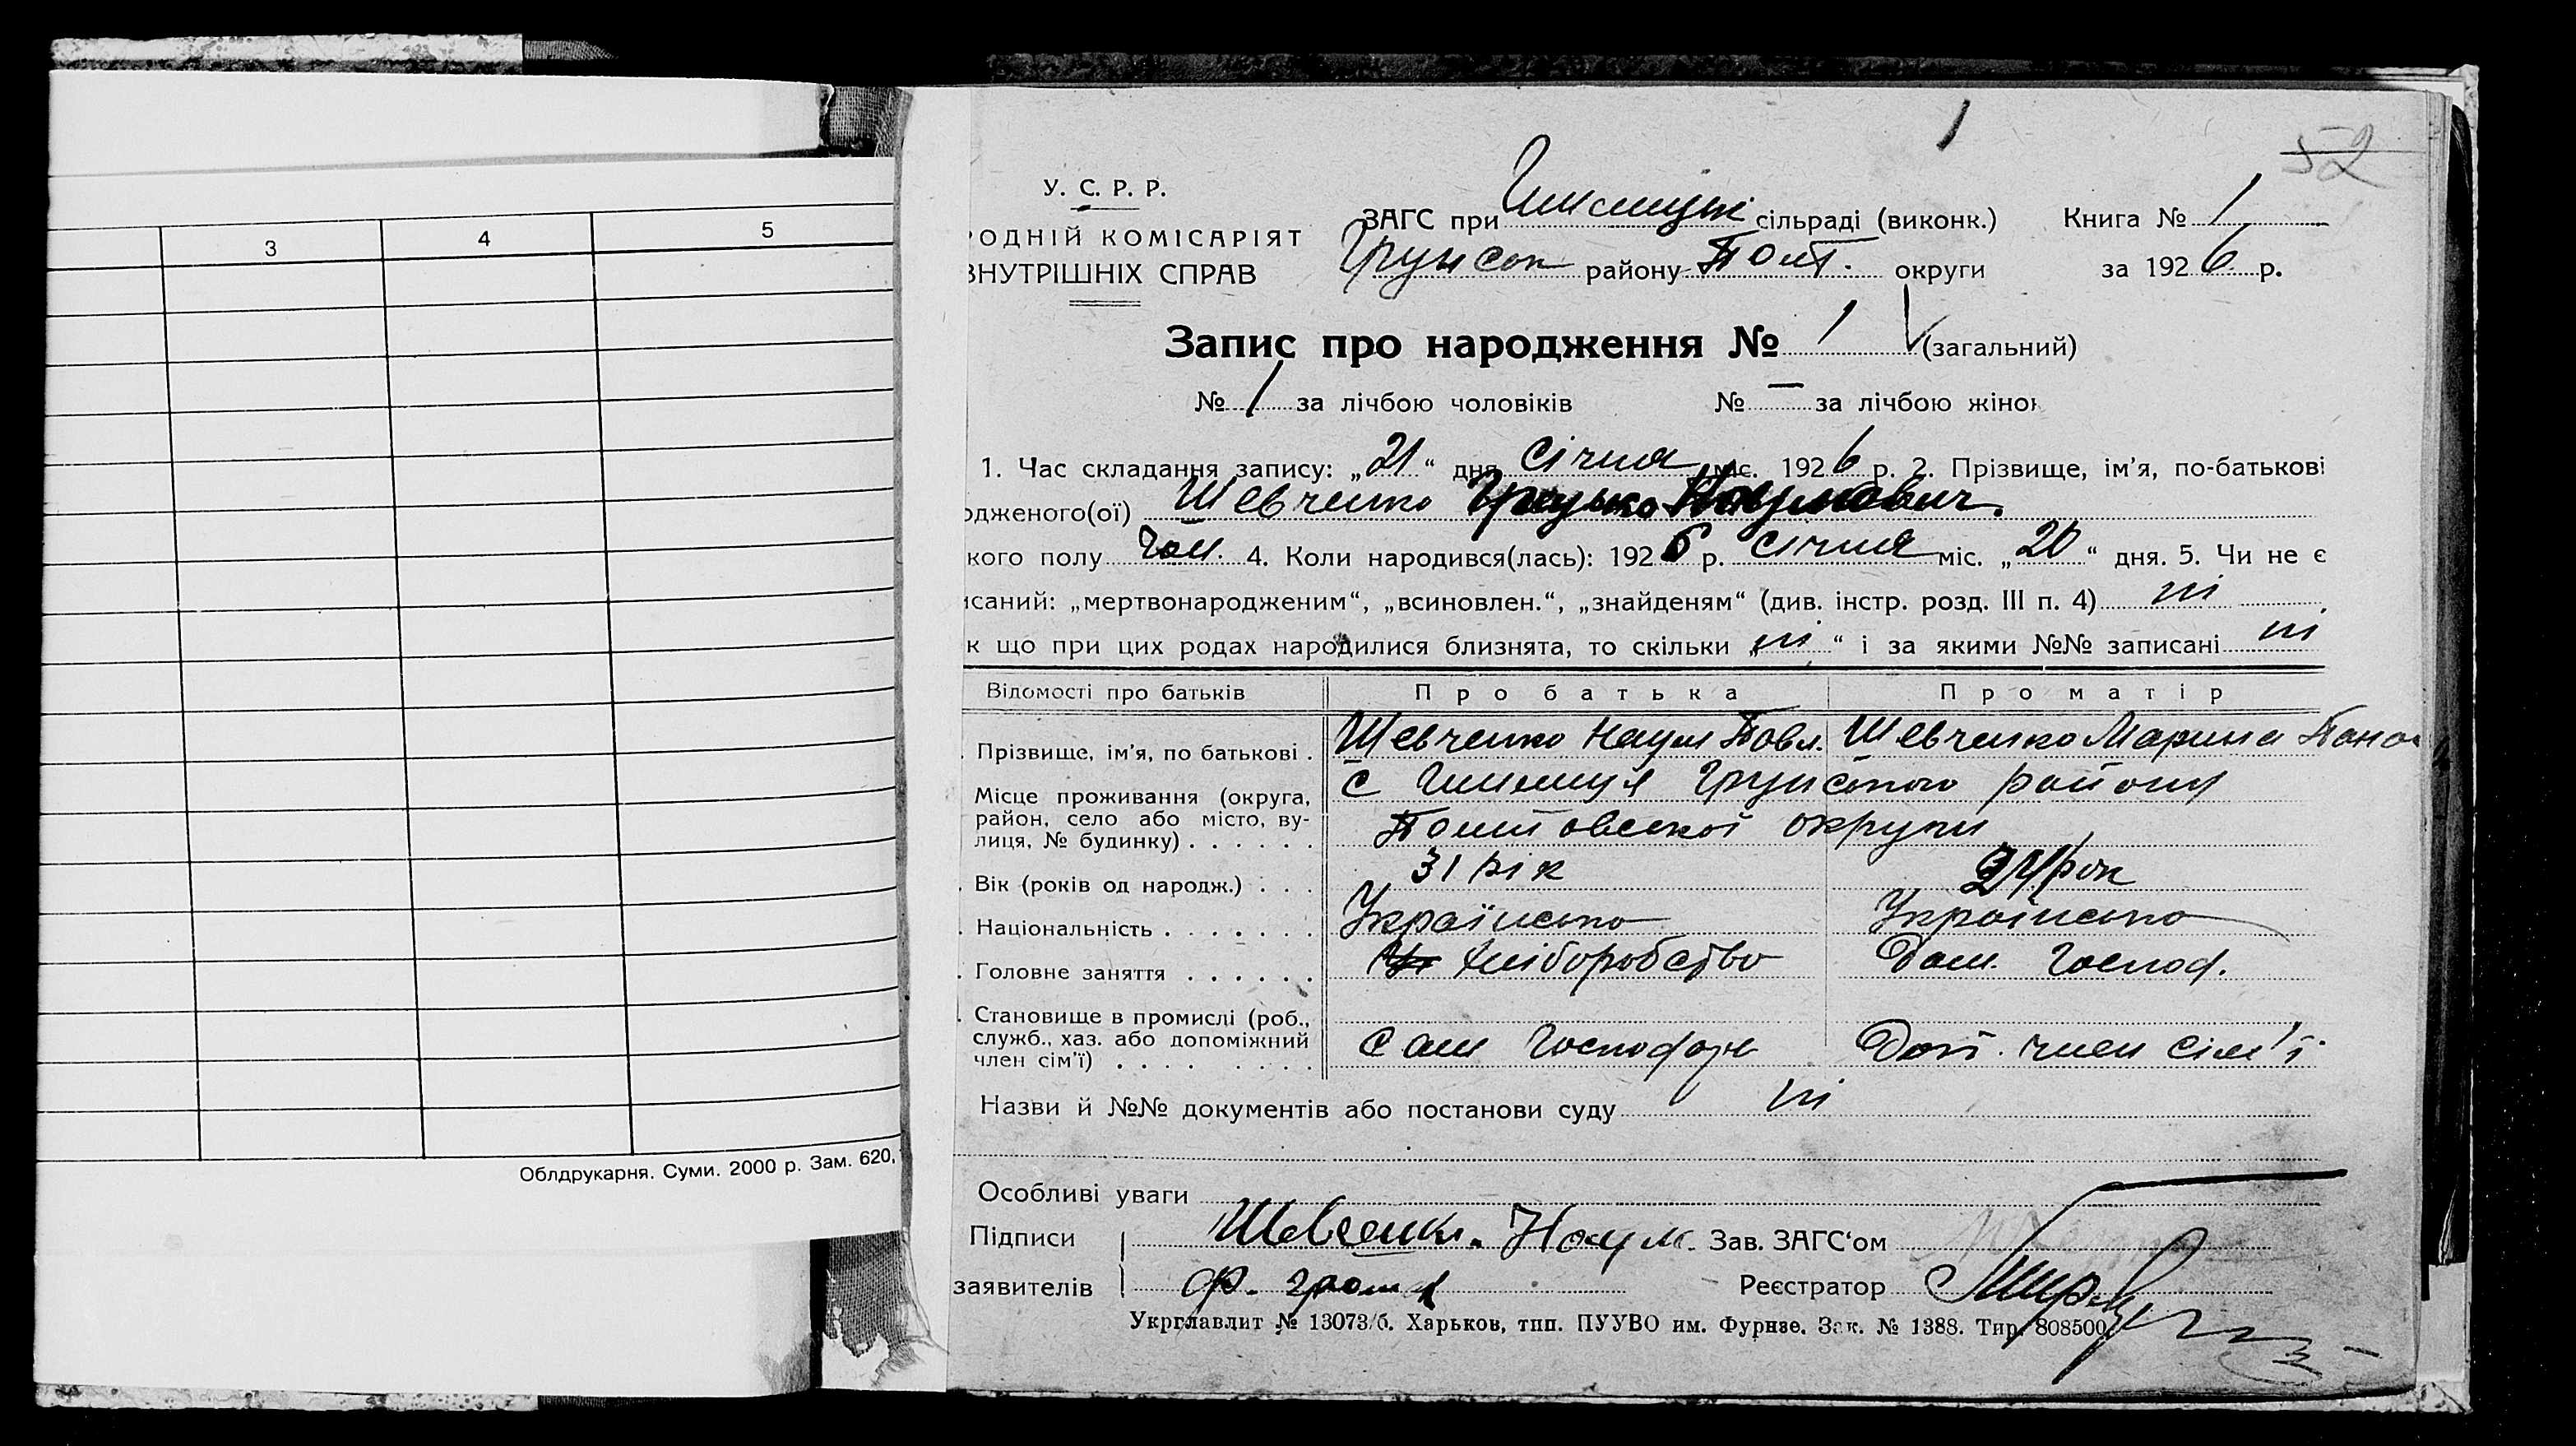 3 4 5
Облдрукарня. Суми. 2000 р. Зам. 620,
1
52
У. С. Р. Р.
РОДНІЙ КОМІСАРІЯТ
ВНУТРІШНІХ СПРАВ
ЗАГС при сільраді (виконк.) Книга № 1
Грунсок району Полт. округи за 1926 р.
Запис про народження № 1 (загальний)
№ 1 за лічбою чоловіків № — за лічбою жінок
1. Час складання запису: „21“ дня Січня міс. 1926 р. 2. Прізвище, ім’я, по-батькові
одженого(ої) Шевченко Грицько Наумович.
кого полу чол. 4. Коли народився(лась): 1926 р. Січня міс. „20“ дня. 5. Чи не є
исаний: „мертвонародженим“, „всиновлен.“, „знайденям“ (див. інстр. розд. III п. 4) ні
к що при цих родах народилися близнята, то скільки „ні“ і за якими №№ записані ні
Відомості про батьків Про батька Про матір
Прізвище, ім’я, по батькові . Шевченко Наум Павл. Шевченко Марина Панас
Місце проживання (округа, район, село або місто, вулиця, № будинку) . . . . . . с Грунського району
Полтовської округи
Вік (років од народж.) . . . 31 рік 24 рок
Національність . . . . . . . Українсько Українсько
Головне заняття . . . . . . Хліборобство Дом. Господ.
Становище в промислі (роб., служб., хаз. або допоміжний член сім’ї) . . . . . . . . Сам Господарь Доп. член сім'ї.
Назви й №№ документів або постанови суду ні
Особливі уваги
Підписи Шевченко. Наум. Зав. ЗАГС‘ом
заявителів Реєстратор
Укрглавлит № 13073/б. Харьков, тип. ПУУВО им. Фрунзе. Зак. № 1388. Тир. 808500.